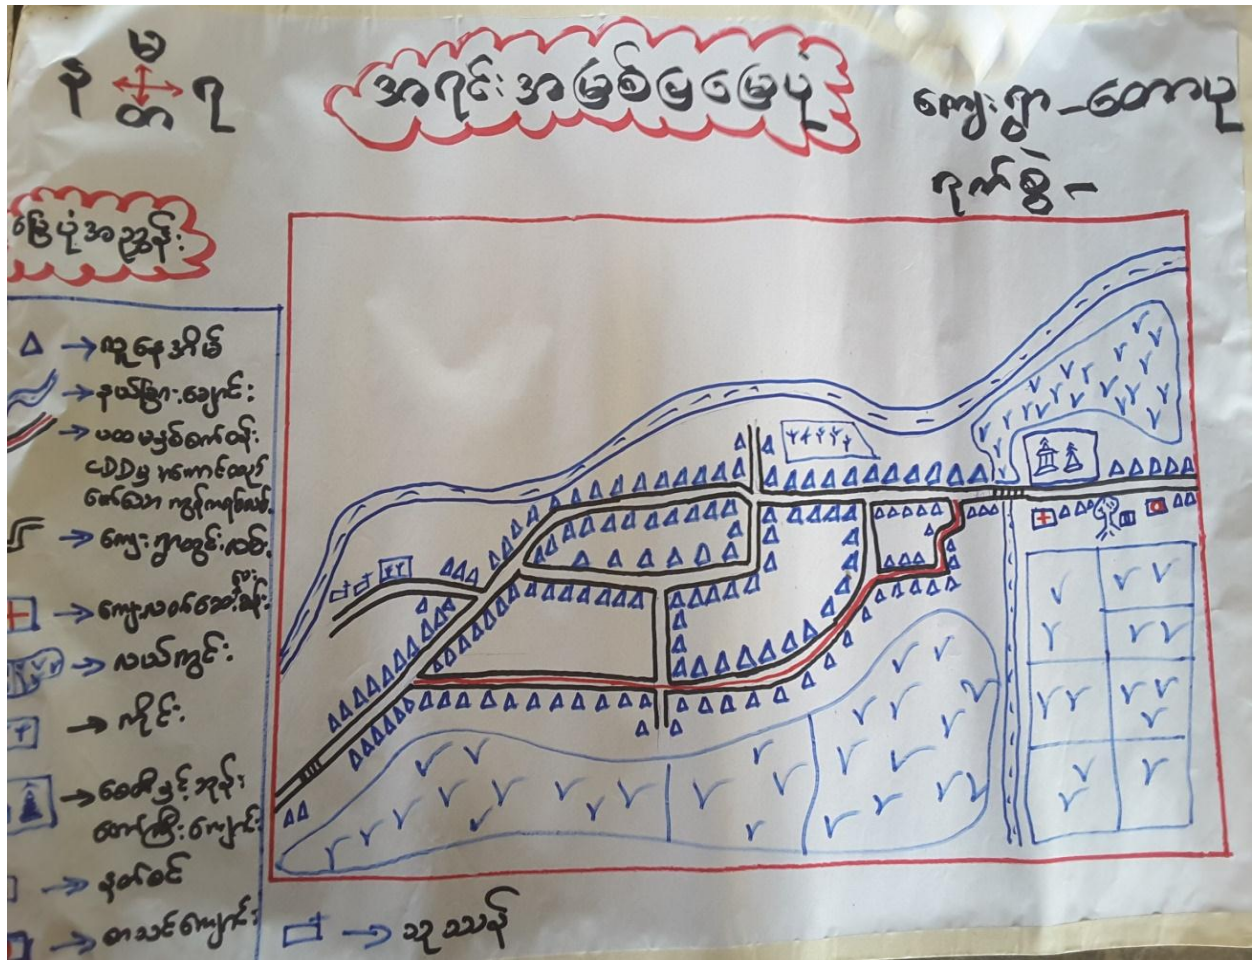 မ
န ရ
တ
အရင်းအမြစ်ပြမြေပုံ
ကျေးရွာ - တောယု
ရက်စွဲ -
မြေပုံအညွှန်း
→ လူနေအိမ်
→ နယ်ခြားချောင်း
→ ပထမနှစ်စက်ဝန်း
CDDမှ အကောင်ထည်
ဖော်သော ကွန်ကရစ်လမ်း
→ ကျေးရွာတွင်းလမ်း
→ ကျေးလက်ဆေးခန်း
→ လယ်ကွင်း
→ ကိုင်း
→ စေတီနှင့်ဘုန်း
တော်ကြီးကျောင်း
→ နတ်စင်
→ စာသင်ကျောင်း
→ သုသာန်